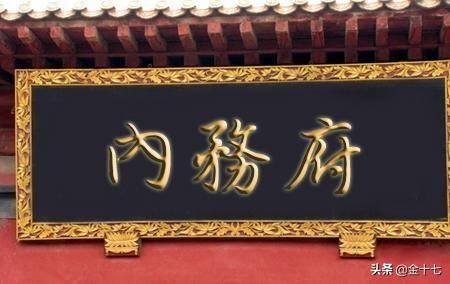 內務府
头条 @金十七